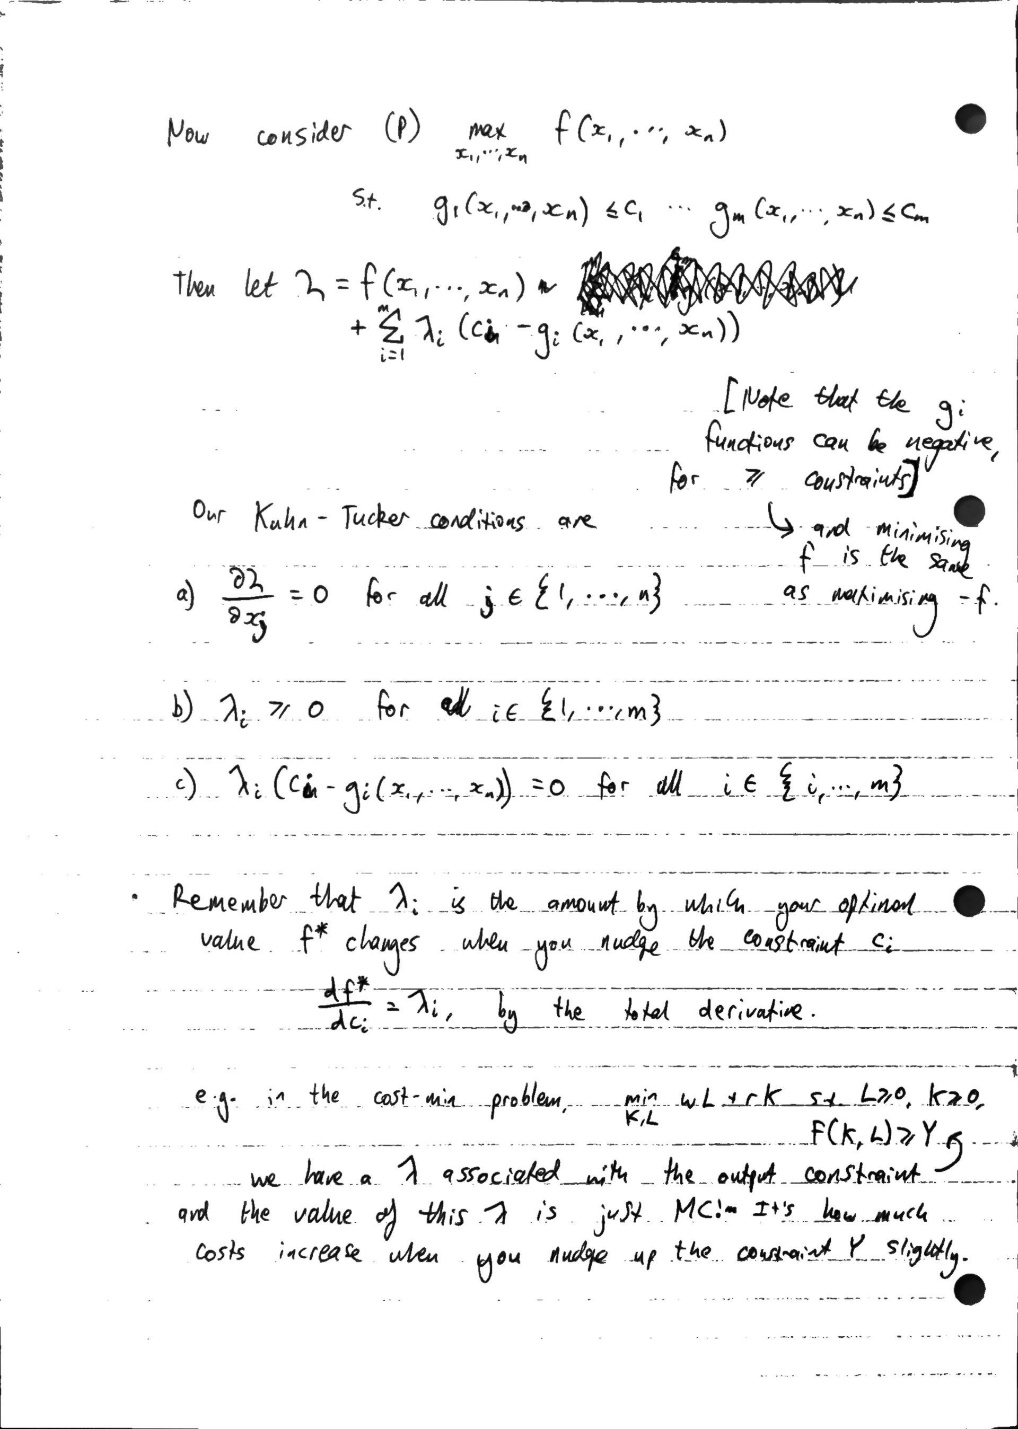 Now consider (P) max f(x₁, ..., xₙ)
x₁,...,xₙ
s.t. g₁(x₁,...,xₙ) ≤ c₁ ... gₘ(x₁,...,xₙ) ≤ cₘ
Then let L = f(x₁,...,xₙ)
+ Σᵢ₌₁ᵐ λᵢ (cᵢ - gᵢ(x₁,...,xₙ))
[Note that the gᵢ
functions can be negative,
for ≥ constraints]
↳ and minimising
f is the same
as maximising -f.
Our Kuhn-Tucker conditions are
a) ∂L/∂xⱼ = 0 for all j ∈ {1,...,n}
b) λᵢ ≥ 0 for all i ∈ {1,...,m}
c) λᵢ (cᵢ - gᵢ(x₁,...,xₙ)) = 0 for all i ∈ {i,...,m}
• Remember that λᵢ is the amount by which your optimal
value f* changes when you nudge the constraint cᵢ
df*/dcᵢ = λᵢ, by the total derivative.
e.g. in the cost-min problem, min wL + rK s.t. L≥0, K≥0,
K,L
F(K,L) ≥ Y
we have a λ associated with the output constraint
and the value of this λ is just MC! It's how much
costs increase when you nudge up the constraint Y slightly.